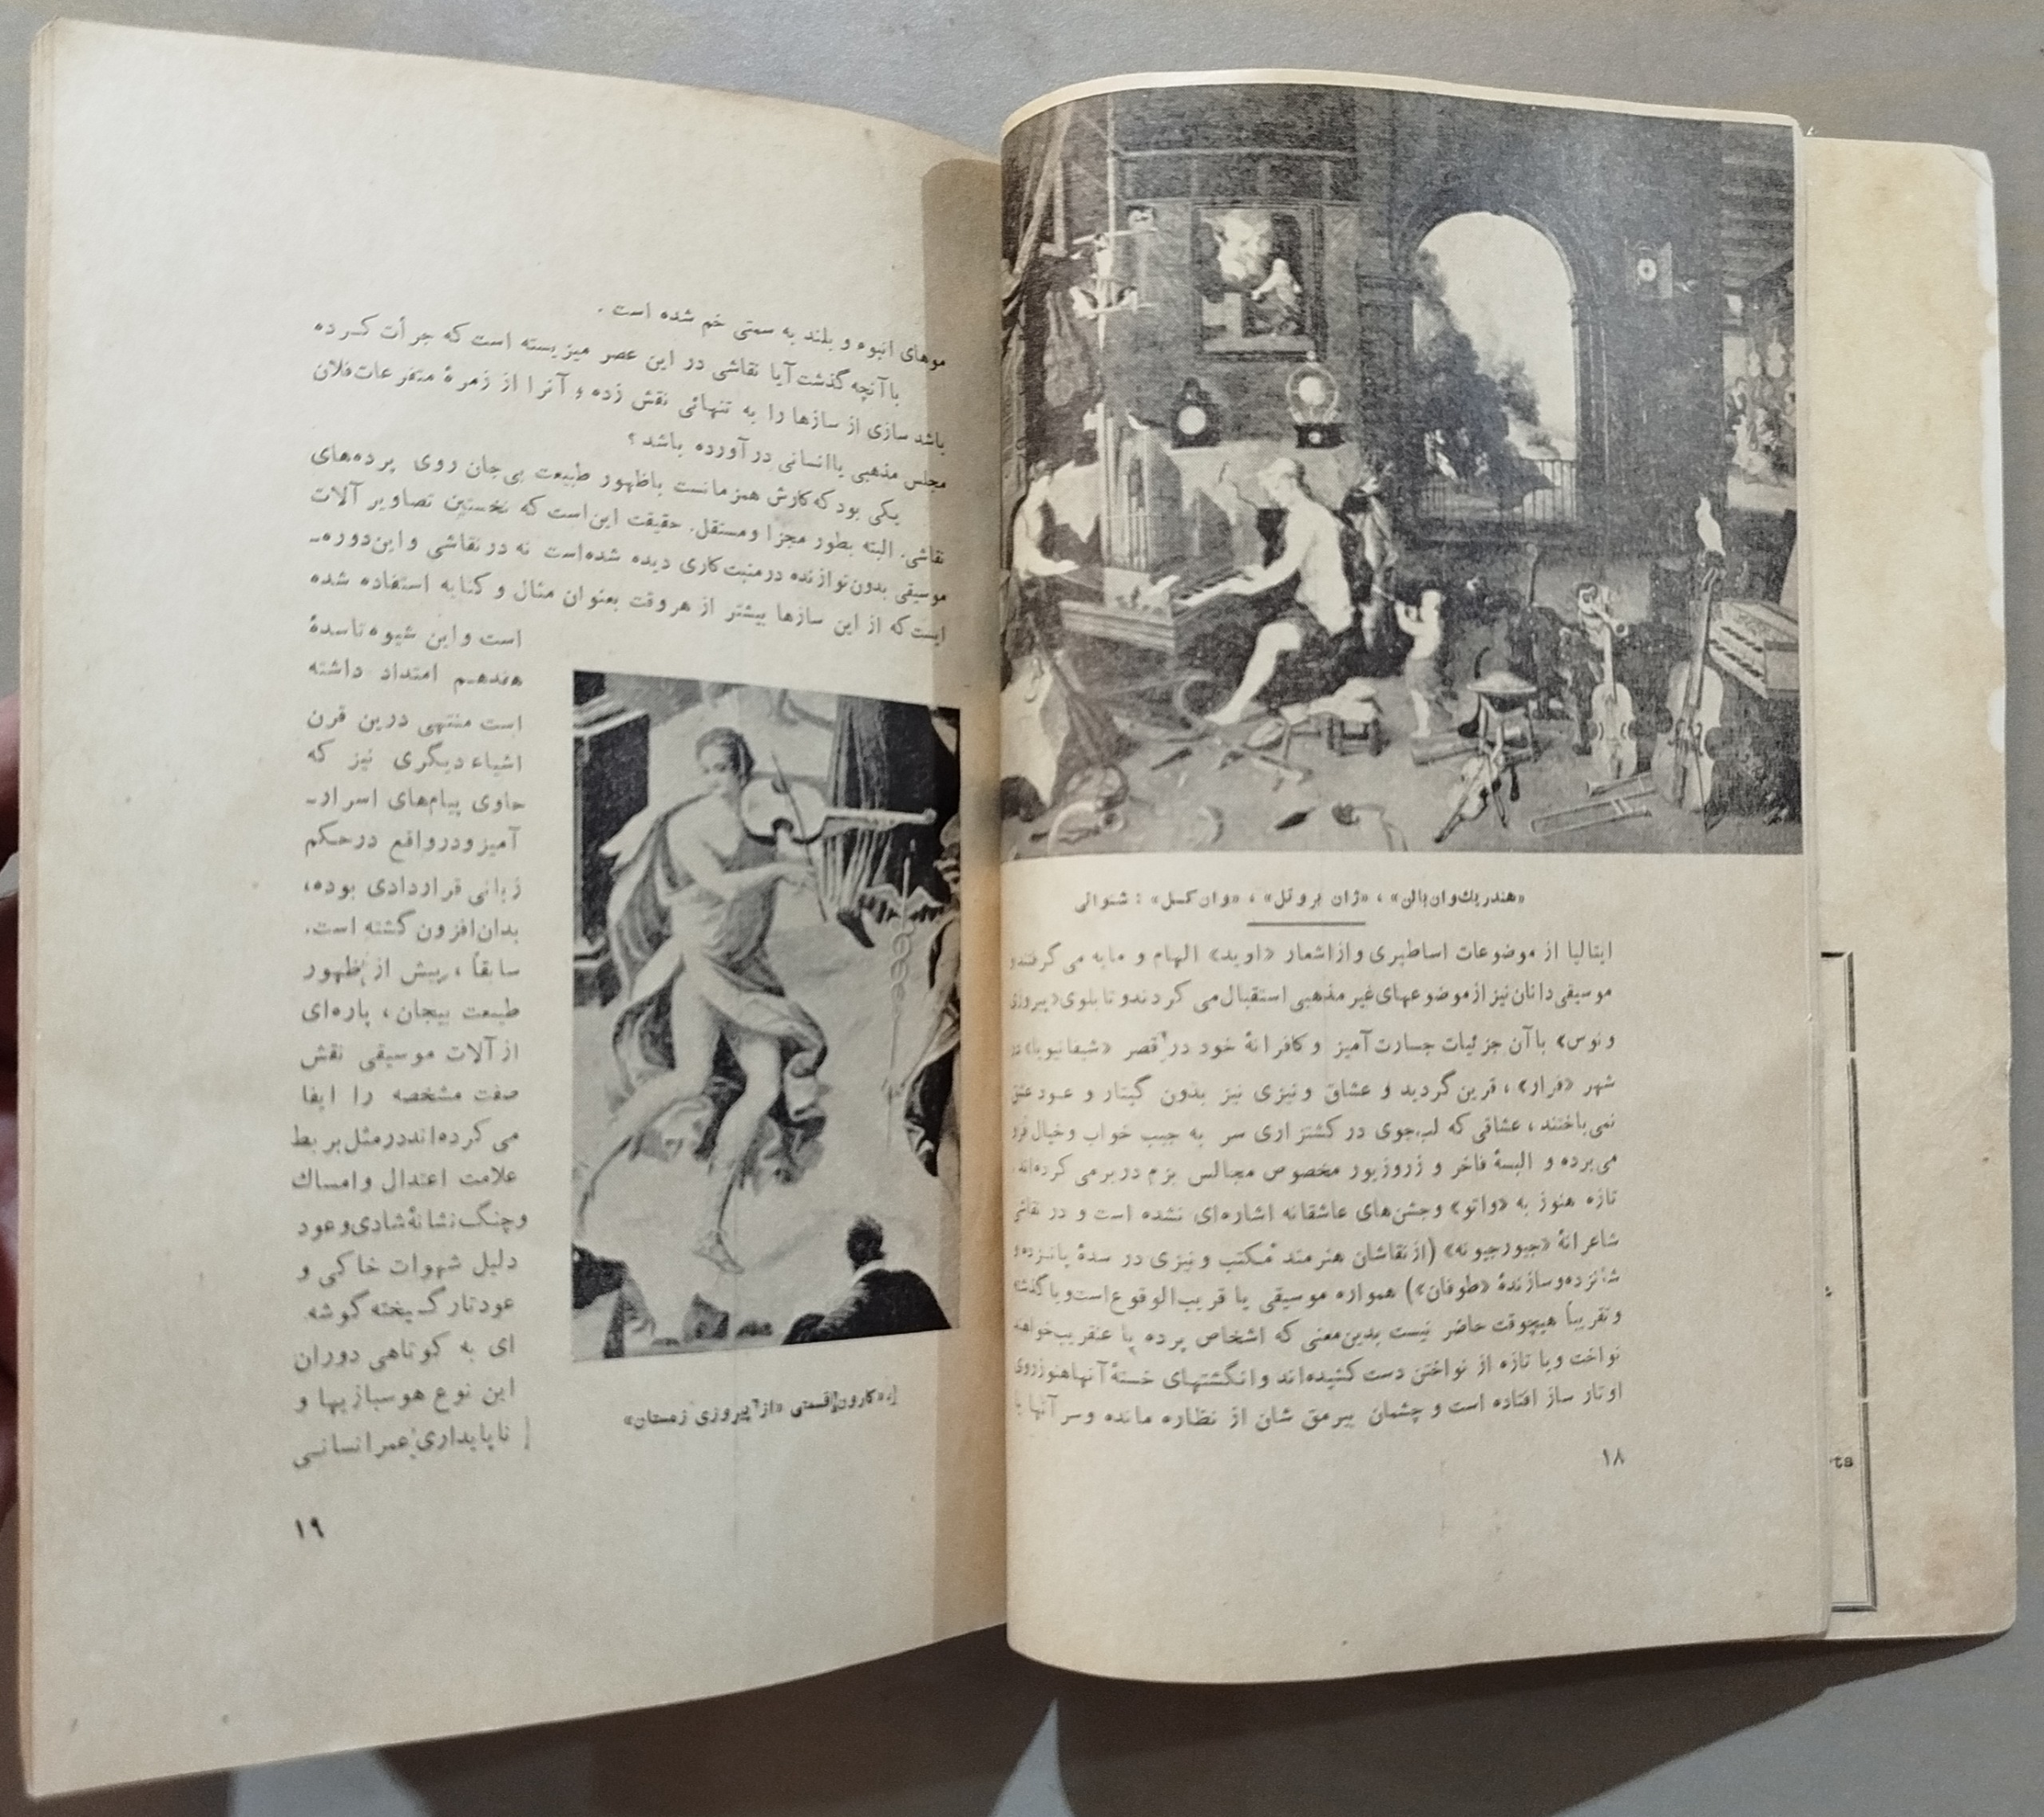 «هندریك‌وان‌بالن» ، «ژان بروگل» ، «وان‌کسل» : شنوائی
ایتالیا از موضوعات اساطیری و از اشعار «اوید» الهام و مایه می گرفتند و
موسیقی‌دانان نیز از موضوعهای غیر مذهبی استقبال می کردند و تابلوی «پیروزی
ونوس» با آن جزئیات جسارت آمیز و کافرانهٔ خود در قصر «شیفانیویا» در
شهر «فرار» ، قرین گردید و عشاق ونیزی نیز بدون گیتار و عود عشق
نمی‌باختند ، عشاقی که لب‌جوی در کشتزاری سر به جیب خواب و خیال فرو
می‌برده و البسهٔ فاخر و زروزیور مخصوص مجالس بزم در بر می کرده‌اند.
تازه هنوز به «واتو» وجشن‌های عاشقانه اشاره‌ای نشده است و در نقاشی
شاعرانهٔ «جیورجیونه» (از نقاشان هنرمند مکتب ونیزی در سدهٔ پانزده و
شانزده و سازندهٔ «طوفان») همواره موسیقی یا قریب‌الوقوع است و یا گذشته
و تقریباً هیچوقت حاضر نیست بدین‌معنی که اشخاص پرده یا عنقریب خواهند
نواخت ویا تازه از نواختن دست کشیده‌اند وانگشتهای خستهٔ آنها هنوز روی
اوتار ساز افتاده است و چشمان بیرمق شان از نظاره مانده وسر آنها با
۱۸
موهای انبوه و بلند به سمتی خم شده است .
با آنچه گذشت آیا نقاشی در این عصر میزیسته است که جرأت کرده
باشد سازی از سازها را به تنهائی نقش زده و آنرا از زمرهٔ متفرعات فلان
مجلس مذهبی یا انسانی در آورده باشد ؟
یکی بود که کارش همزمانست باظهور طبیعت بی‌جان روی پرده‌های
نقاشی. البته بطور مجزا ومستقل. حقیقت این است که نخستین تصاویر آلات
موسیقی بدون نوازنده در منبت‌کاری دیده شده‌است نه در نقاشی و این دوره‌ـ
ایست که از این سازها بیشتر از هر وقت بعنوان مثال و کنایه استفاده شده
است و این شیوه تاسدهٔ
هفدهم امتداد داشته
است منتهی درین قرن
اشیاء دیگری نیز که
حاوی پیام‌های اسرار‌ـ
آمیز ودر واقع در حکم
زبانی قراردادی بوده،
بدان افزون گشته است.
سابقاً ، پیش از ظهور
طبیعت بیجان ، پاره‌ای
از آلات موسیقی نقش
صفت مشخصه را ایفا
می کرده‌اند در مثل بربط
علامت اعتدال وامساك
وچنگ نشانهٔ شادی و عود
دلیل شهوات خاکی و
عود تار گسیخته گوشه
ای به کوتاهی دوران
این نوع هوسبازیها و
ناپایداری عمر انسانی
«کارون» قسمتی «از پیروزی زمستان»
۱۹
rts